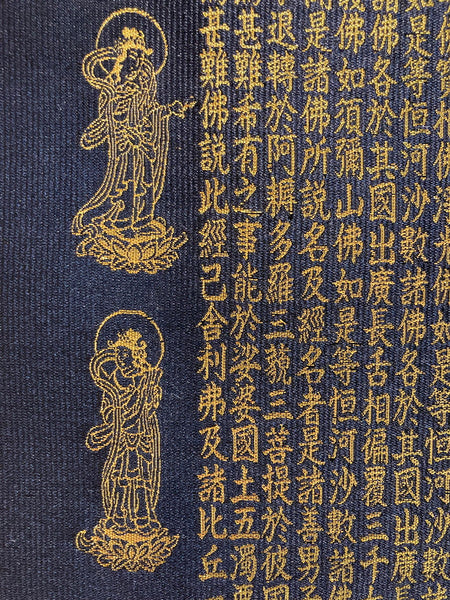 佛寶相佛淨光佛如是等恒河沙
如是等恒河沙數諸佛各於其國出廣長
諸佛各於其國出廣長舌相徧覆三千
義佛如須彌山佛如是等恒河沙數諸佛
是諸佛所說名及經名者是諸善男
退轉於阿耨多羅三藐三菩提於彼國
甚難希有之事能於娑婆國土五濁惡
甚難佛說此經已舍利弗及諸比丘一